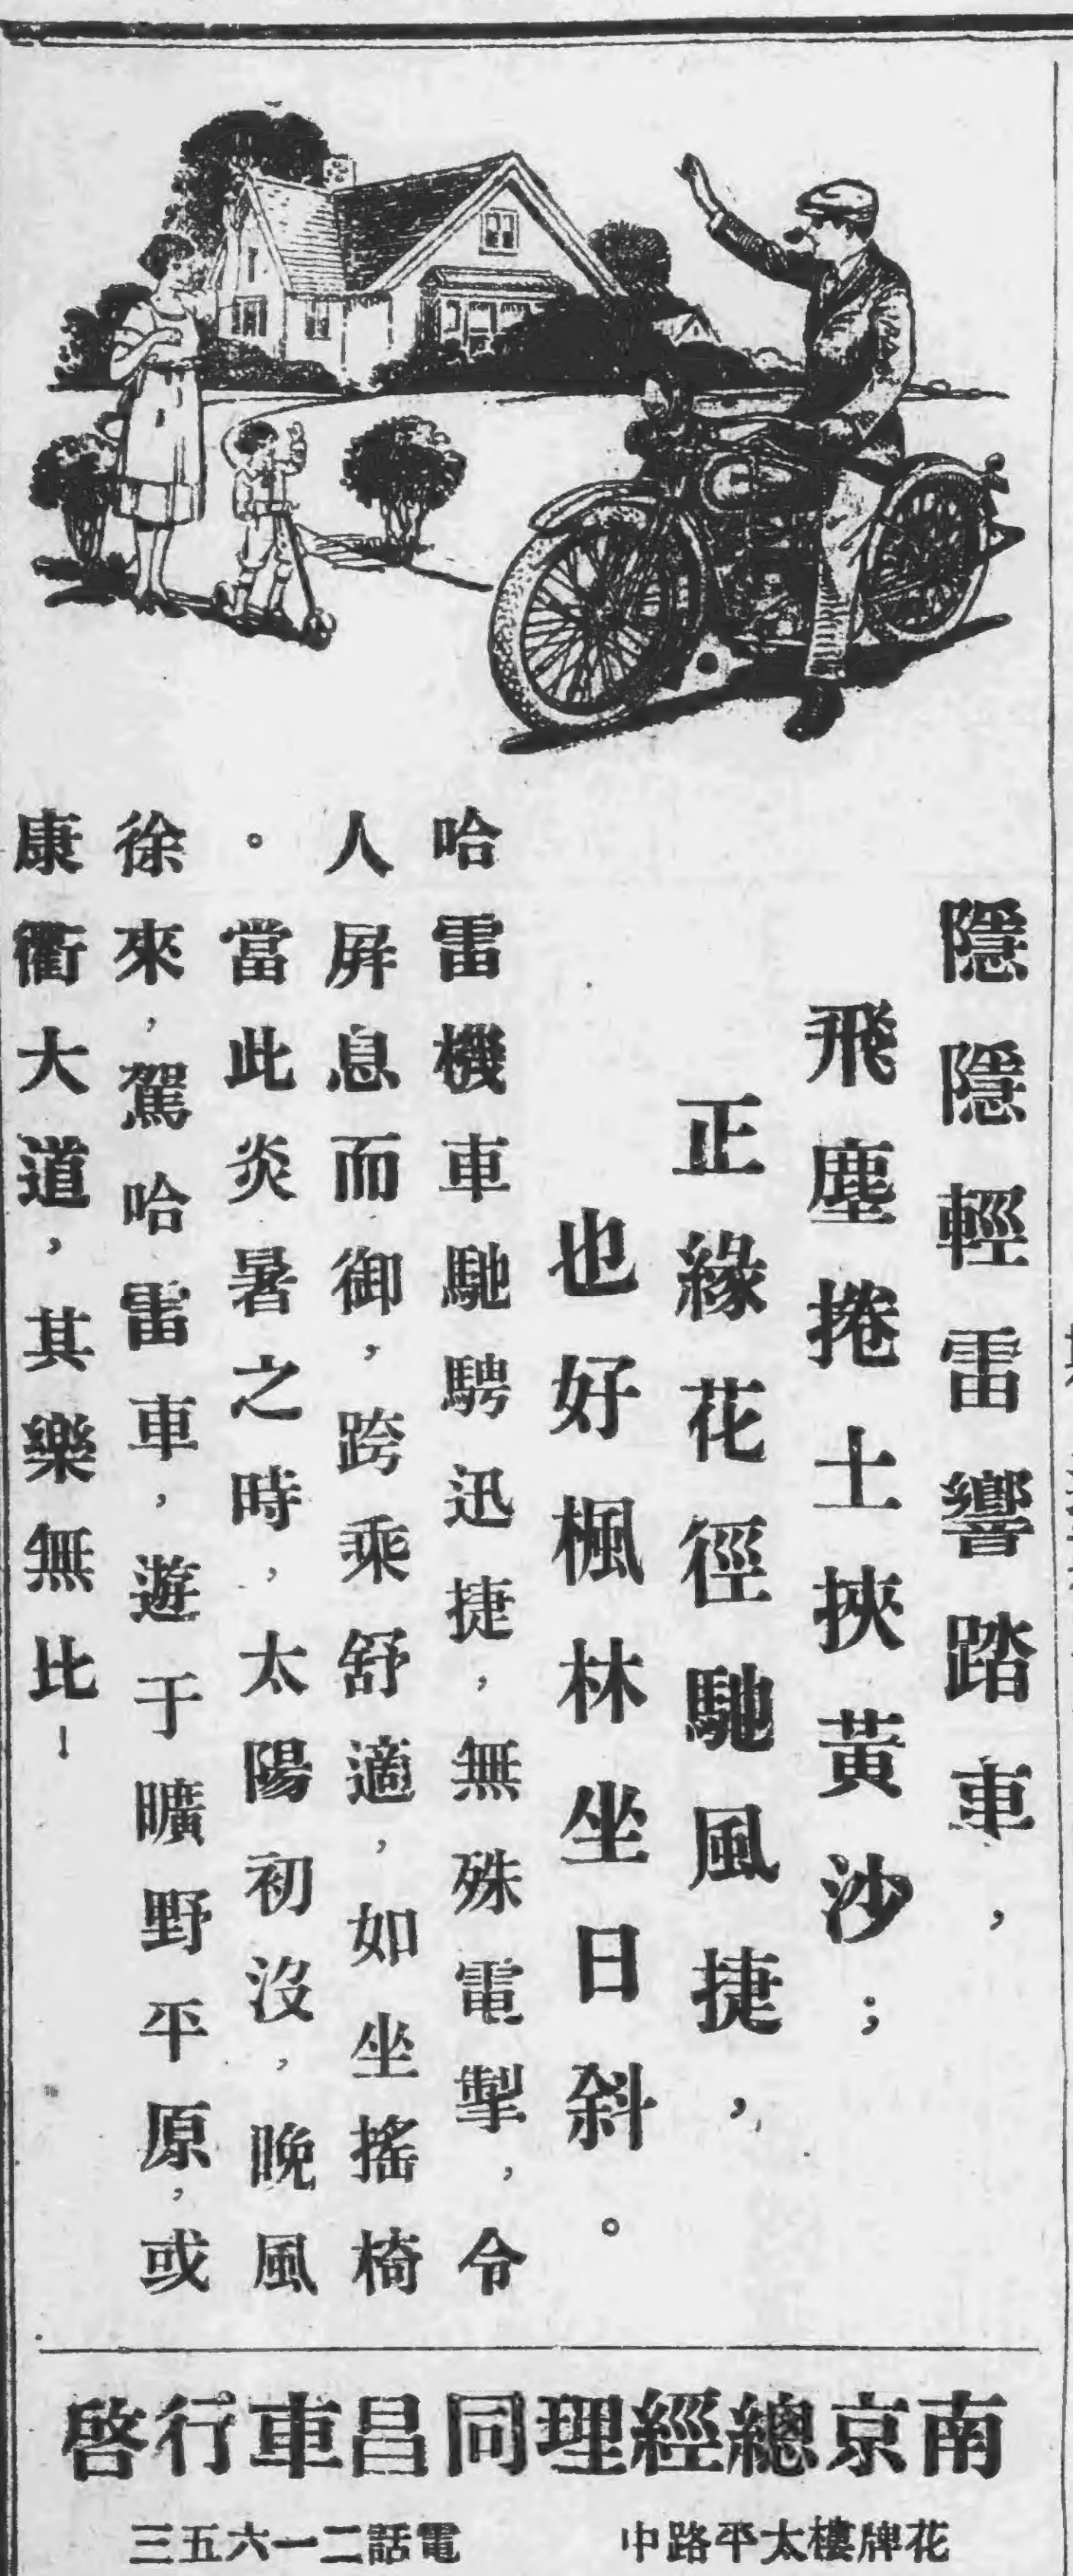 隱隱輕雷響踏車，
飛塵捲土挾黃沙；
正緣花徑馳風捷，
也好楓林坐日斜。
哈雷機車馳騁迅捷，無殊電掣，令
人屏息而御，跨乘舒適，如坐搖椅
。當此炎暑之時，太陽初沒，晚風
徐來，駕哈雷車，遊于曠野平原，或
康衢大道，其樂無比！
南京總經理同昌車行啓
花牌樓太平路中
電話二一六五三